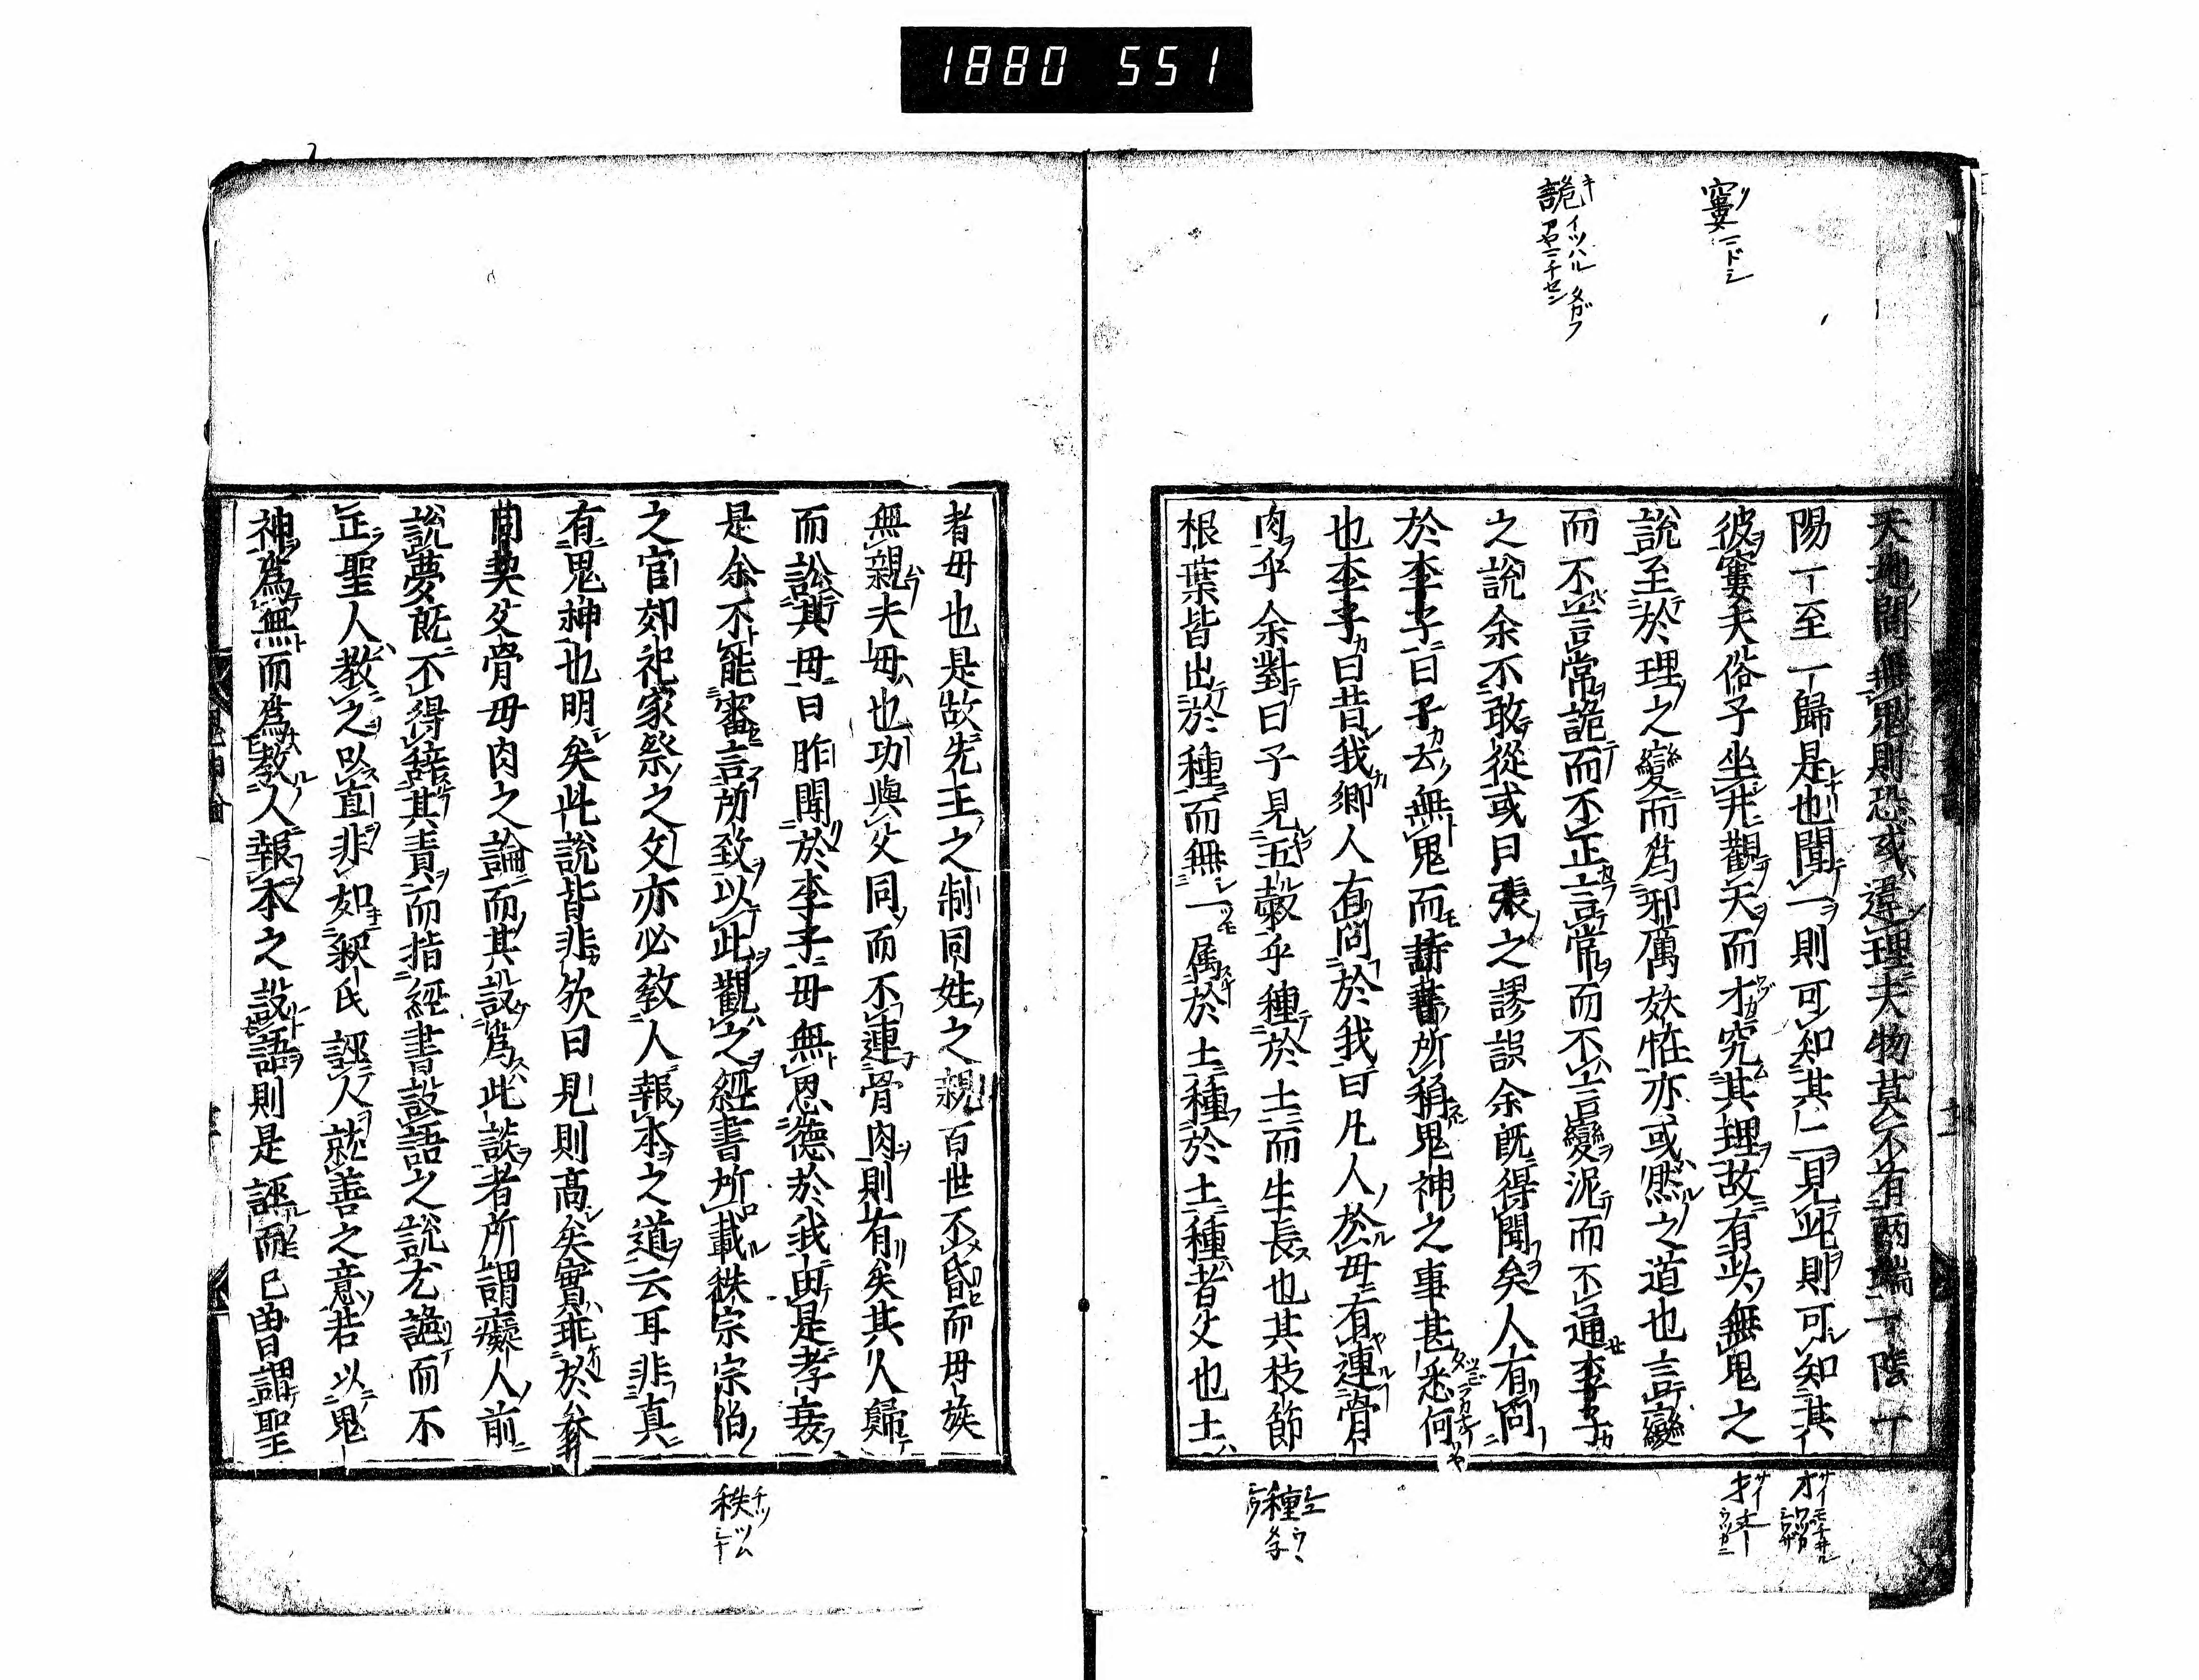 1880 551
窶 リ ニドシ
詭 キ イツハル タガフ
アヤニチセン
天地間無鬼則恐或違理夫物莫不有兩端一陰一
陽一至一歸是也聞一則可知其二見此則可知其
彼窶夫俗子坐井觀天而才究其理故有此無鬼之
說至於理之變而爲邪厲妖恠亦或然之道也言變
而不言常詭而不正言常而不言變泥而不通李子
之說余不敢從或曰張之謬誤余既得聞矣人有問
於李子曰子云無鬼而詩書所稱鬼神之事甚悉何
也李子曰昔我鄉人有問於我曰凡人於毋有連骨
肉乎余對曰子見五穀乎種於土而生長也其枝節
根葉皆出於種而無一属於土種於土種者父也土
才 サイ
才 サイ
種
者毋也是故先王之制同姓之親百世不昏而毋族
無親夫毋也功與父同而不連骨肉則有矣其人歸
而訟其毋曰昨聞於李子毋無恩德於我由是孝衰
是余不能審言所致以此觀之經書所載秩宗宗伯
之官郊祀家祭之文亦必教人報本之道云耳非真
有鬼神也明矣此說皆非欤曰見則高矣實乖於矣
用契父骨毋肉之論而其設爲此談者所謂癡人前
說夢既不得辭其責而指經書設語之說尤詭而不
正聖人教之以直非如釈氏誣人就善之意若以鬼
神爲無而爲教人報本之設語則是誣而已曽謂聖
秩 チツ ツム